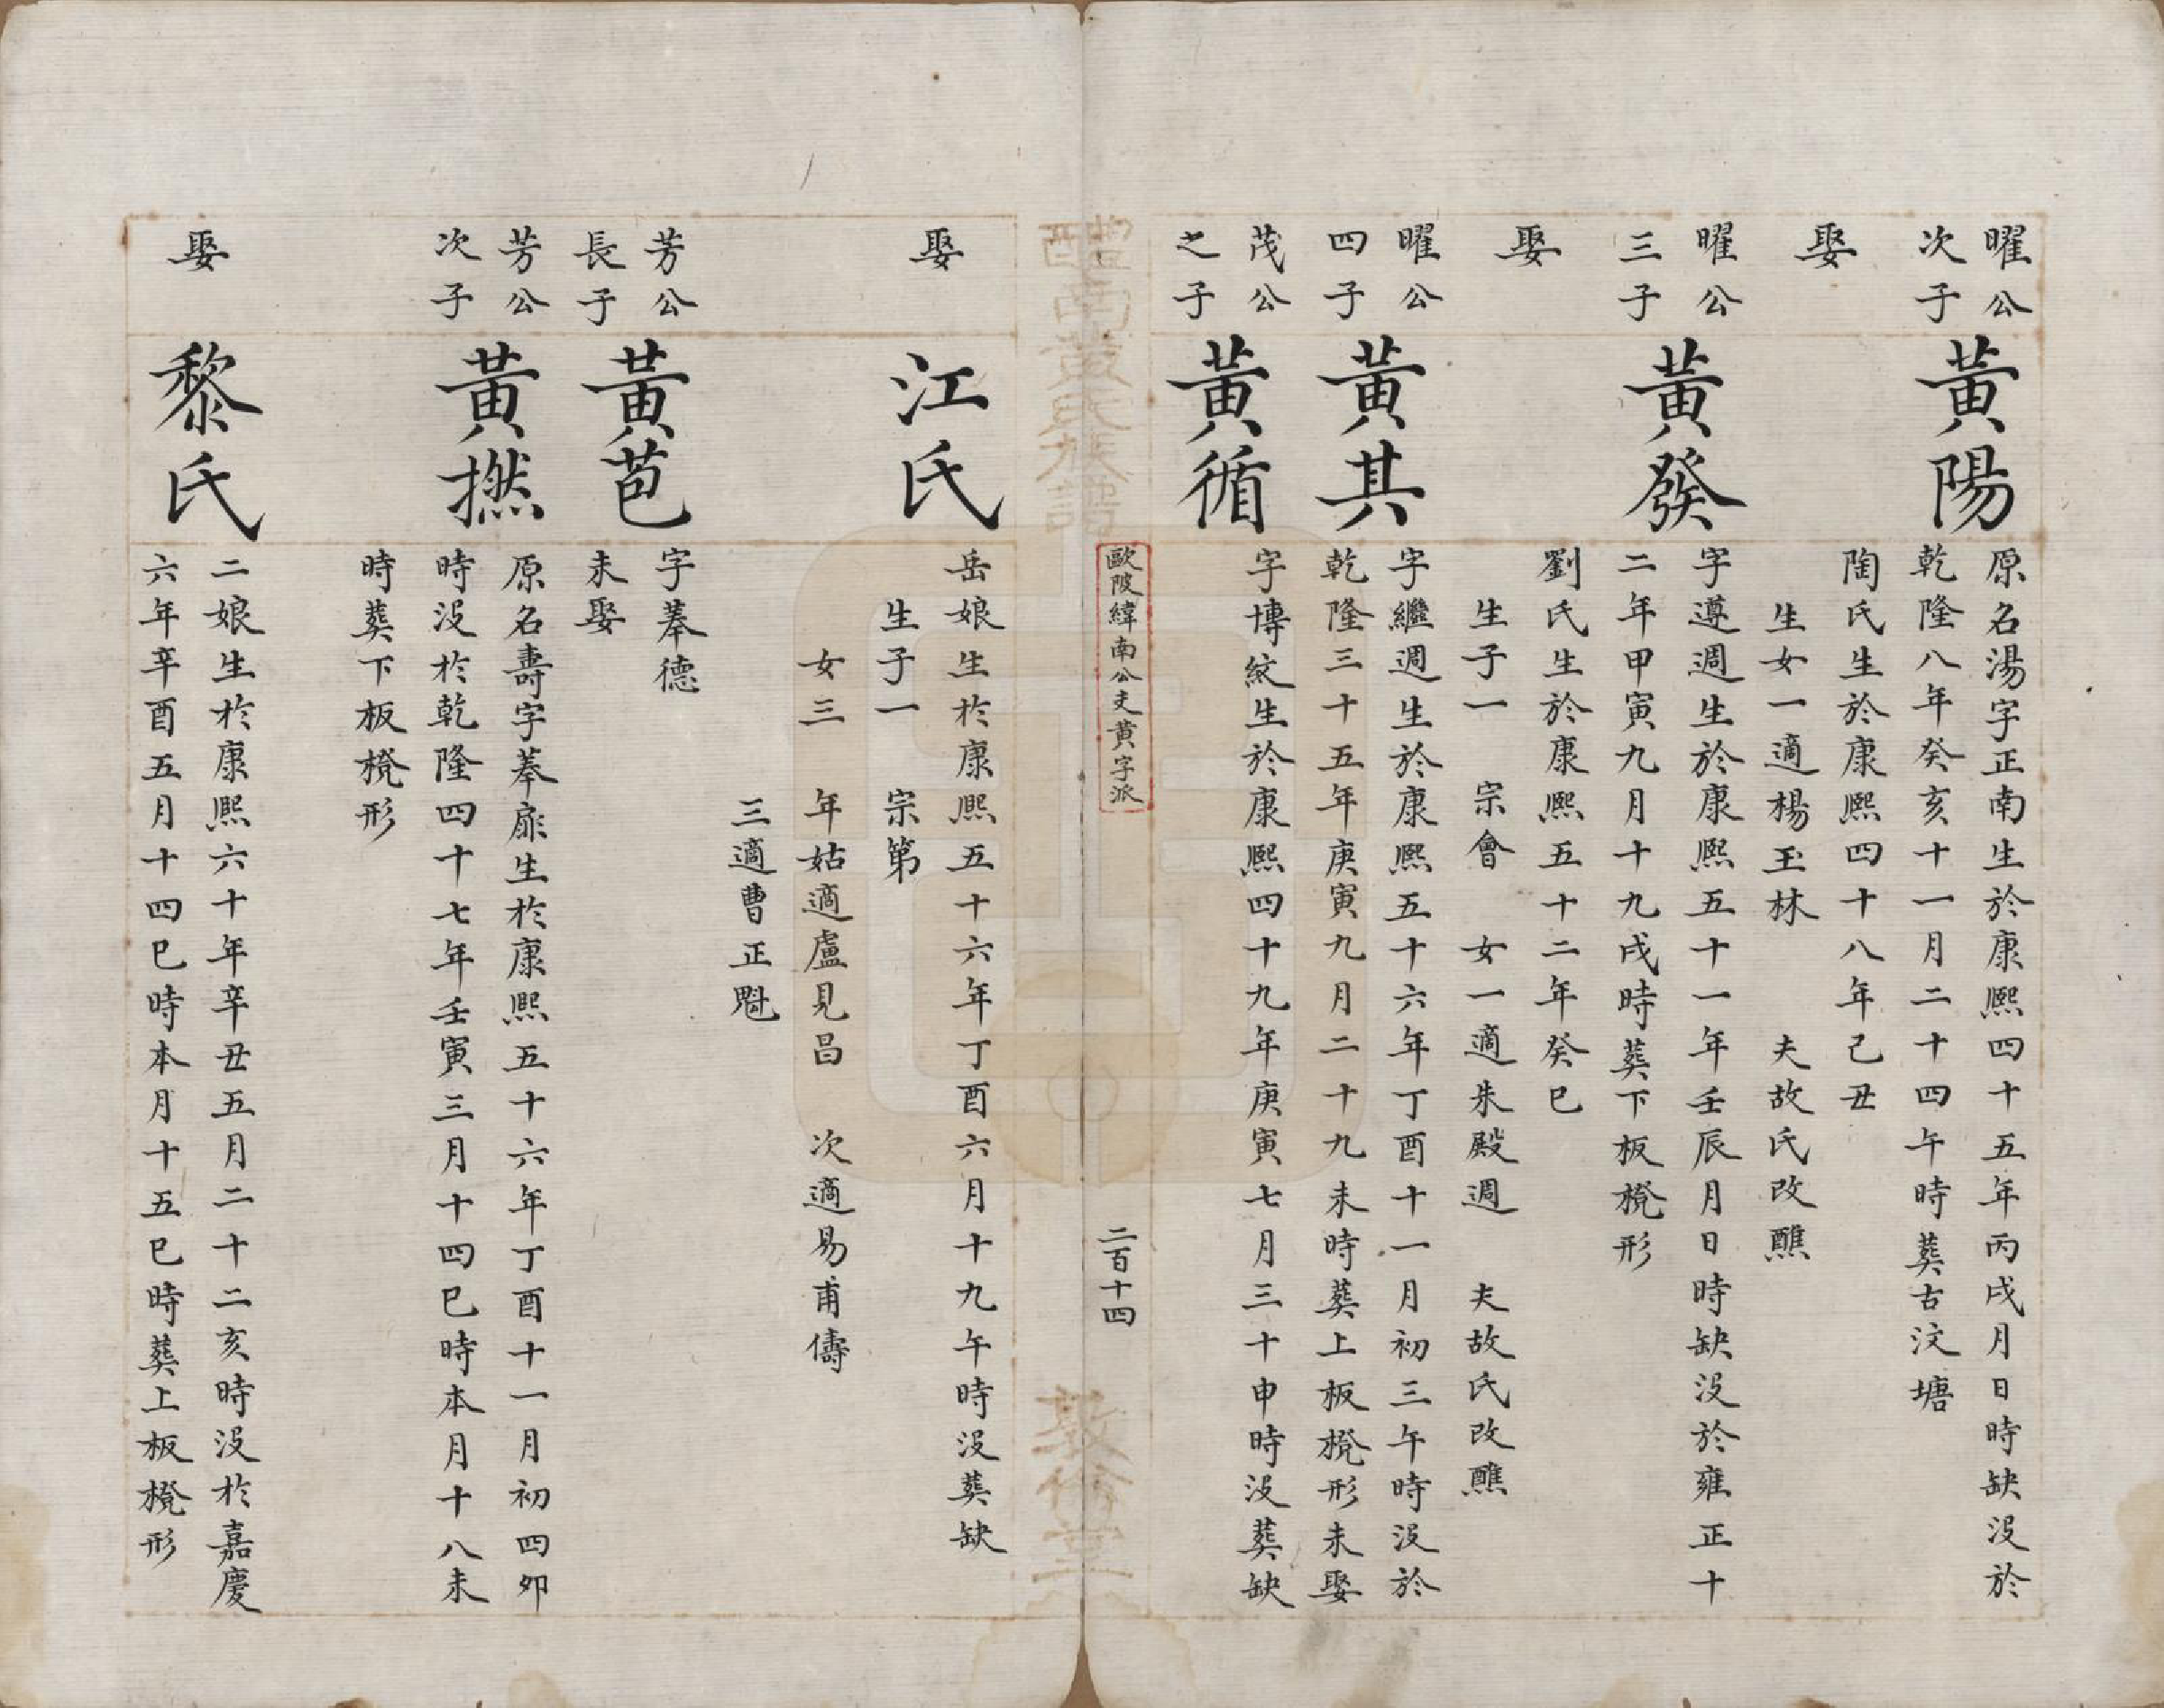 曜公
次子
黃陽
原名湯字正南生於康熙四十五年丙戌月日時缺沒於
乾隆八年癸亥十一月二十四午時葬古汶塘
娶
陶氏生於康熙四十八年己丑
生女一適楊玉林　夫故氏改醮
曜公
三子
黃發
字遵週生於康熙五十一年壬辰月日時缺沒於雍正十
二年甲寅九月十九戌時葬下板櫈形
娶
劉氏生於康熙五十二年癸巳
生子一　宗會　女一適朱殿週　夫故氏改醮
曜公
四子
黃其
字繼週生於康熙五十六年丁酉十一月初三午時沒於
乾隆三十五年庚寅九月二十九未時葬上板櫈形未娶
茂公
之子
黃循
字博紋生於康熙四十九年庚寅七月三十申時沒葬缺
醴南黃氏族譜
歐陂緯南公支黃字派
二百十四
敦倫堂
娶
江氏
岳娘生於康熙五十六年丁酉六月十九午時沒葬缺
生子一　宗第
女三　年姑適盧見昌　次適易甫儔
三適曹正魁
芳公
長子
黃芭
字奉德
未娶
芳公
次子
黃撚
原名壽字奉𢋈生於康熙五十六年丁酉十一月初四卯
時沒於乾隆四十七年壬寅三月十四巳時本月十八未
時葬下板櫈形
娶
黎氏
二娘生於康熙六十年辛丑五月二十二亥時沒於嘉慶
六年辛酉五月十四巳時本月十五巳時葬上板櫈形